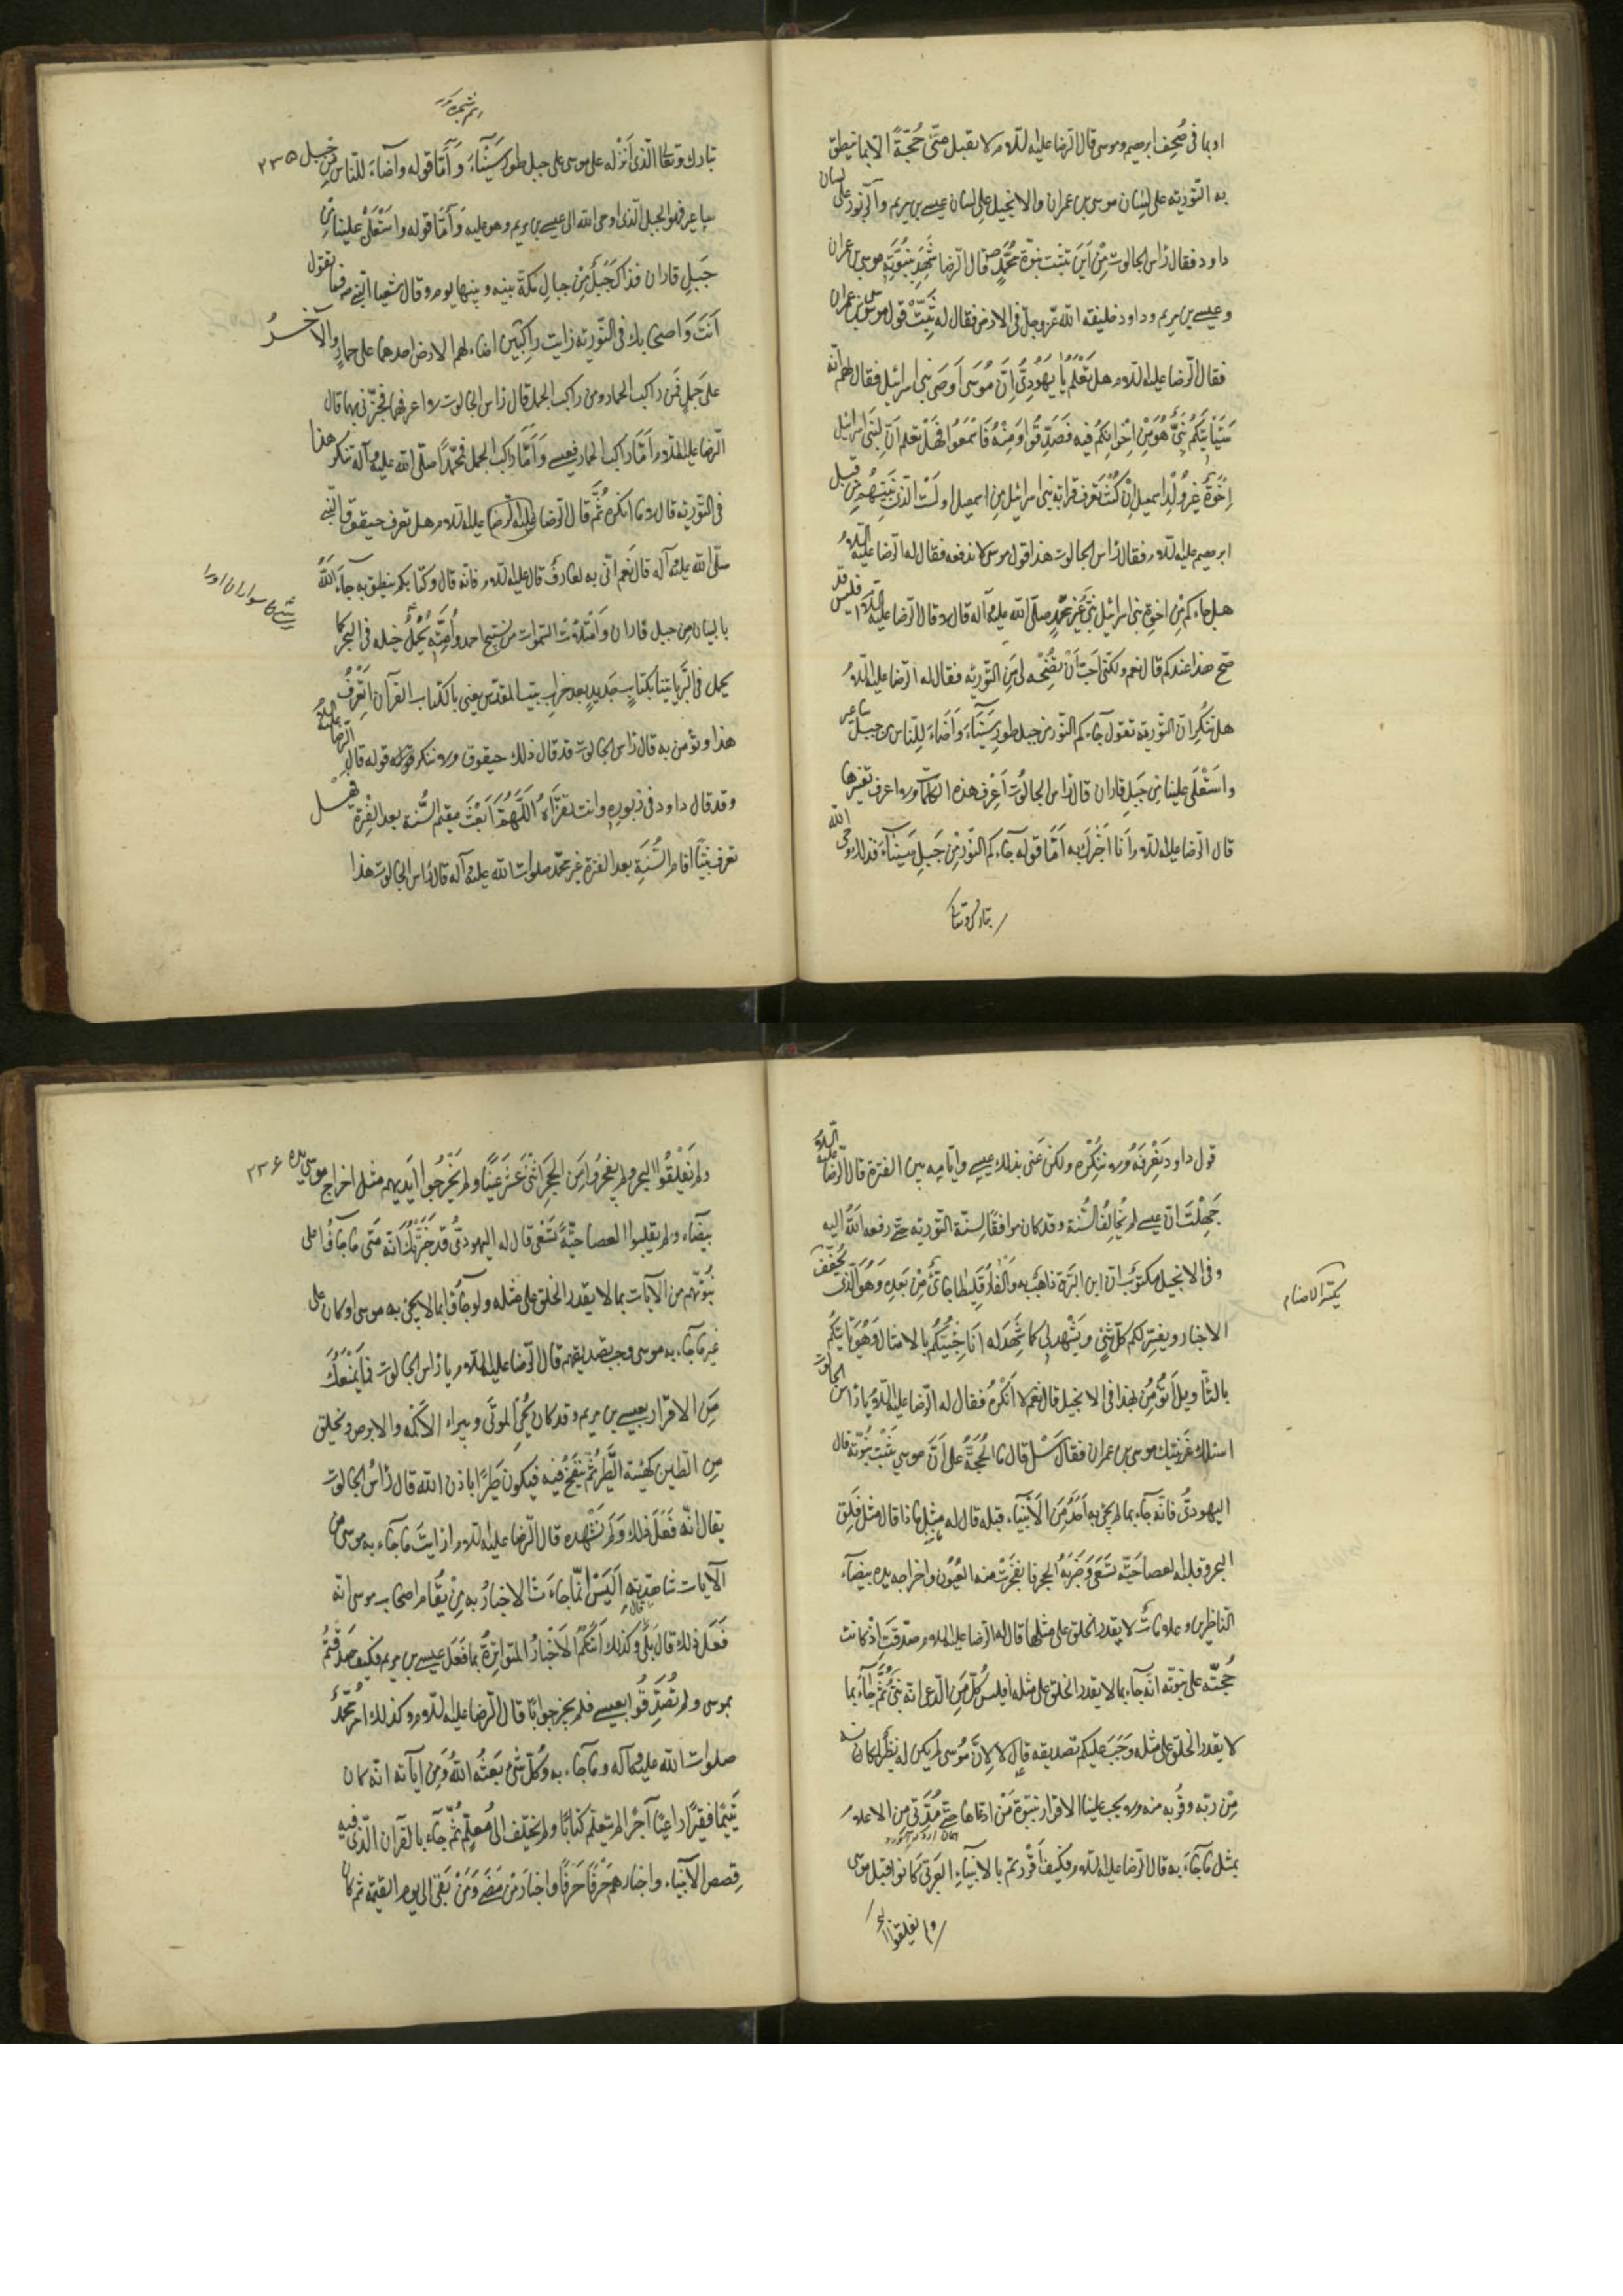 او بما فى صُحِف ابرهيم وموسى قال الرّضا عليه السّلام لا يقبل منّى حُجّةً الّا بما تنطق
به التّورية على لسان موسى بن عمران والانجيل على لسان عيسى بن مريم والزّبور على لسان
داود فقال رأس الجالوت مِنْ اَينَ تثبت نبوّة محمّدٍ ص قال الرّضا شَهِدَ بنبُوَّتِهِ موسى بن عمران
وعيسى بن مريم وداود خليفة الله عزّ وجلّ فى الارض فقال له ثَبِّتْ قول موسى بن عمران
فقال الرّضا عليه السّلام هل تَعْلَمُ يا يَهُودِىُّ اِنَّ مُوسَى اَوصَى بنى اسرائيل فقال لهم انّه
سَيَأتيكم نَبِىٌّ هُوَ مِنْ اِخْوانِكُمْ فيه فَصَدِّقُوا وَمِنْهُ فَاسْمَعُوا فَهَلْ تعلم اَنَّ لِبَنى اسرائيل
اِخْوَةً غيرَ وُلْدِ اسمعيل اِنْ كُنْتَ تَعرف قرابة بنى اسرائيل مِن اسمعيل والنّسب الّذى بَيْنَهُم مِن قِبَلِ
ابرهيم عليه السّلام فقال رأس الجالوت هذا قول موسى لا ندفعه فقال له الرّضا عليه السّلام
هل جاءكم مِن اخوة بنى اسرائيل نبىٌّ غير محمّدٍ صلّى الله عليه وآله قال لا قال الرّضا عليه السّلام افليس قد
صحّ هذا عندكم قال نعم ولكنّى اُحِبُّ اَنْ تُصَحِّحَه لى مِنَ التّورية فقال له الرّضا عليه السّلام
هل تُنكِر انّ التّورية تقول جاءكم النّور من جبل طور سَيْناءَ وَاَضاءَ لِلنّاس من جبل ساعير
واستَعْلَى علينا مِن جَبَلِ فاران قال رأس الجالوت اَعْرِفُ هذه الكلمات وما اعرف تفسيرها
قال الرّضا عليه السّلام اَنا اُخْبِرُك به اَمّا قوله جاءكم النّور مِنْ جَبَلِ سَيناءَ فذلك وحى الله
تبارك وتعالى
تبارك وتعالى الّذى اَنْزَله على موسى على جبل طور سَيْناءَ وَاَمّا قوله واَضاءَ للنّاس مِن جبل ۲۳۵
ساعير فهو الجبل الّذى اوحى الله الى عيسى بن مريم وهو عليه وَاَمّا قوله واسْتَعْلى علينا مِن
جَبَلِ فاران فذاك جَبَلٌ مِنْ جبالِ مكّة بينه وبينها يوم وقال شعيا النّبى ص فيما تقول
اَنتَ وَاصحابك فى التّورية رايت راكِبَيْن اضاء لهم الارض احدهما على حمارٍ والآخَرُ
على جَمَلٍ فمَن راكب الحمار ومن راكب الجمل قال رأس الجالوت لا اعرفهما فخبّرنى بهما قال
الرّضا عليه السّلام اَمّا راكب الحمار فعيسى وَاَمّا راكب الجمل فمحمّدٌ صلّى الله عليه وآله تنكر هذا
فى التّورية قال لا ما انكره ثُمَّ قال الرّضا عليه السّلام هل تعرف حيقوق النّبى
صلّى الله عليه وآله قال نَعم انّى به لعارفٌ قال عليه السّلام فانّه قال وكتابكم ينطق به جاءَ اللهُ
بالبيان مِن جبل فاران وَامْتَلأَتِ السّموات من تسبيح احمد واُمّته يُحْمَلُ خيله فى البحر كما
يحمل فى البَرِّ ياتينا بكتابٍ جديدٍ بعد خراب بيت المقدّس يعنى بالكتاب القرآن اَتَعْرِفُ
هذا وتؤمن به قال رأس الجالوت قد قال ذلك حيقوق ولا ننكر قوله قال الرّضا عليه السّلام
وقد قال داود فى زبوره وانت تقرَأهُ اللّهُمَّ ابْعَثْ مقيم السُّنة بعد الفِترة فهل
تعرف نبيّاً اقام السُّنةَ بعد الفترة غير محمّد صلوات الله عليه وآله قال رأس الجالوت هذا
قول داود نَعْرِفُهُ ولا نُنْكِرُه ولكن عَنى بذلك عيسى وايّامه هى الفترة قال الرّضا عليه السّلام
جَهِلْتَ انّ عيسى لم يُخالِفِ السُّنة وقد كان موافقًا لسنّة التّورية حتّى رفعه اللهُ اليه
وفى الانجيل مكتوبٌ انّ ابن البَرّة ذاهب والفارقليطا جائىٌ مِنْ بَعدِه وَهُوَ الّذى يُخَفِّفُ
الاصار ويفسّر لكم كلّ شئٍ ويَشْهد لى كما شَهِدتُ له اَنَا جِئْتُكم بالامثال وَهُوَ يَأتيكُم
بالتأويل اَتُؤمِنُ بهذا فى الانجيل قال نعم لا اُنكِرُه فقال له الرّضا عليه السّلام يا رأس الجالوت
اسئلك عن نبيّك موسى بن عمران فقال سَلْ قال ما الحُجَّةُ على اَنَّ موسى ثَبَتَتْ نبُوّته قال
اليهودىّ فانّه جاء بما لم يَجِئ به اَحَدٌ مِنَ الاَنْبياءِ قبله قال له مثل ماذا قال مثل فَلَقِ
البحر وقلبه العصا حَيّةً تسعَى وَضَرْبِهِ الحجر فانفجرَتْ منه العُيُون واخراجه يده بيضاءَ
للنّاظرين وعلاماتٌ لا يقدر الخلق على مثلها قال له الرّضا عليه السّلام صدَقتَ اذ كانت
حُجّتَه على نبوّته انّه جاء بما لا يقدر الخلق على مثله افليس كُلّ مَنِ ادّعى انّه نبىٌّ ثُمَّ جاءَ بما
لا يقدر الخلق على مثله وَجَبَ عليكم تصديقه قال لا لِاَنَّ مُوسى لم يكن له نظير لمكانه
مِنْ ربّه وقُربه منه ولا يجب علينا الاقرار بنبوّة مَنْ ادّعاها حتّى ياتى مِن الاعلام
بمثل ما جاءَ به قال الرّضا عليه السّلام فكيف اَقْرَرتم بالانبياءِ الّذين كانوا قبل موسى
ولم يفلقوا البحر
ولم يَفْلِقُوا البحر ولم يفجروا مِن الحجر اثْنَتَى عشرَ عَيْنًا ولم يُخْرِجُوا ايديهم مثل اخراج موسى يده ۲۳۶
بيضاء ولم يقلبوا العصا حيّةً تَسْعَى قال له اليهودىّ قد خَبَّرْتُكَ انّه مَتَى ما جاؤُا على
نُبوّتهم من الآيات بما لا يقدر الخلق على مثله ولو جاؤُا بما لا يجئ به موسى او كان على
غير ما جاء به موسى وجب تصديقهم قال الرّضا عليه السّلام يا رأس الجالوت فما يَمْنَعُكَ
مِنَ الاقرار بعيسى بن مريم وقد كان يُحْيى المَوتَى ويبراء الاَكْمَه والابرص ويخلق
مِن الطّين كهيئة الطَّير ثُمَّ ينفُخ فيه فيَكون طَيرًا باذن الله قال رأس الجالوت
يقال انّه فَعَلَ ذلك وَلَم نَشْهده قال الرّضا عليه السّلام ارايتَ ما جاء به موسى من
الآيات شاهدته اَلَيْسَ انّما جاءَتْ الاخبارُ به مِنْ ثِقاتِ اصحاب موسى انّه
فَعَل ذلك قال بلى قال وكذلك اتتكُمُ الاَخبارُ المتواترة بما فَعَلَ عيسى بن مريم فكيف صَدّقتُم
بموسى ولم تُصَدِّقُوا بعيسى فلم يحر جوابًا قال الرّضا عليه السّلام وكذلك امر محمّدٍ
صلوات الله عليه وآله وما جاء به وَكُلّ نبىٍّ بَعَثَهُ اللهُ وَمِن آياته انّه كان
يَتيمًا فقيرًا راعيًا اجيرًا لم يتعلّم كتابًا ولم يختلف الى مُعلّم ثُمّ جاء بالقرآن الّذى فيه
قِصَصُ الاَنبياء واخبارهم حَرْفًا حَرْفًا واخبار مَنْ مَضى وَمَنْ بَقى الى يوم القيمة ثم كان